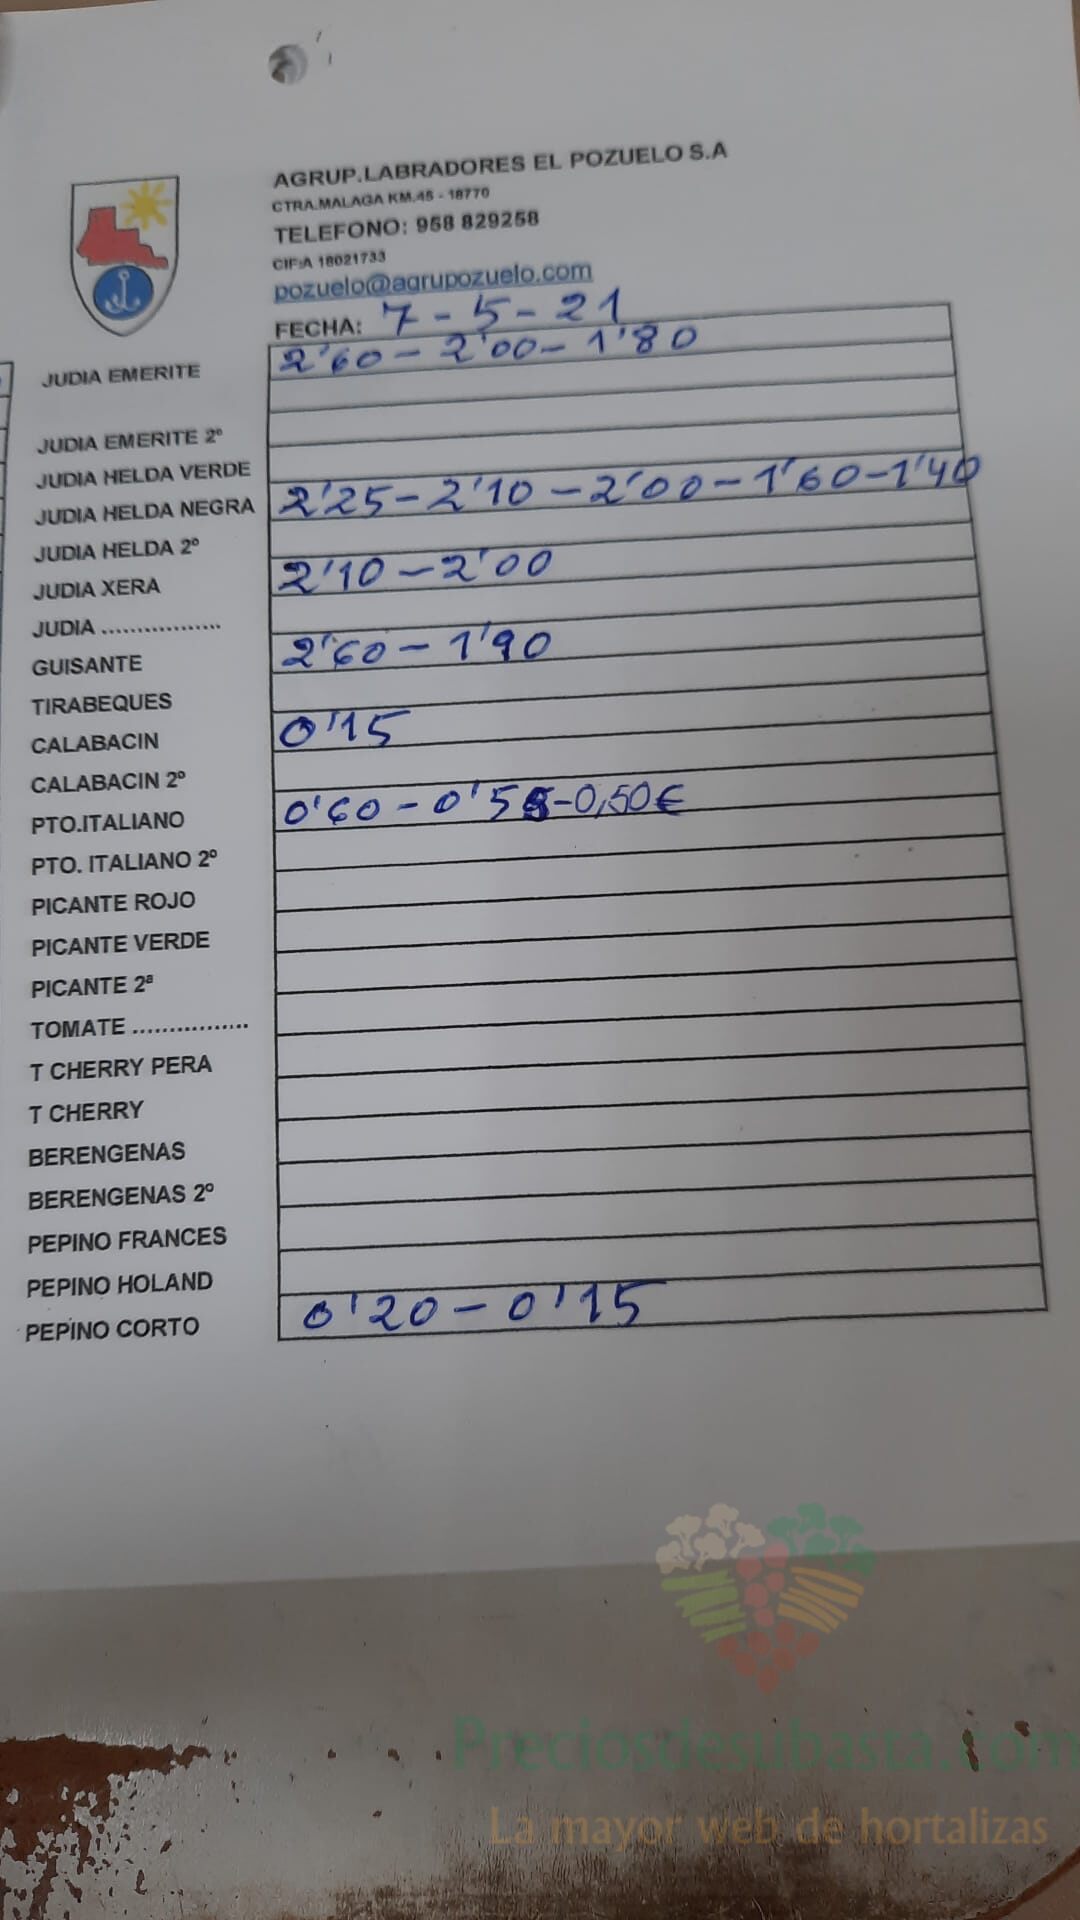 AGRUP.LABRADORES EL POZUELO S.A
CTRA.MALAGA KM.45 - 18770
TELEFONO: 958 829258
CIF:A 18021733
pozuelo@agrupozuelo.com
FECHA: 7-5-21
JUDIA EMERITE 2'60-2'00-1'80
JUDIA EMERITE 2º
JUDIA HELDA VERDE
JUDIA HELDA NEGRA 2'25-2'10-2'00-1'60-1'40
JUDIA HELDA 2º
JUDIA XERA 2'10-2'00
JUDIA .................
GUISANTE 2'60-1'90
TIRABEQUES
CALABACIN 0'15
CALABACIN 2º
PTO.ITALIANO 0'60-0'55-0,50€
PTO. ITALIANO 2º
PICANTE ROJO
PICANTE VERDE
PICANTE 2ª
TOMATE ................
T CHERRY PERA
T CHERRY
BERENGENAS
BERENGENAS 2º
PEPINO FRANCES
PEPINO HOLAND
PEPINO CORTO 0'20-0'15
Preciosdesubasta.com
La mayor web de hortalizas